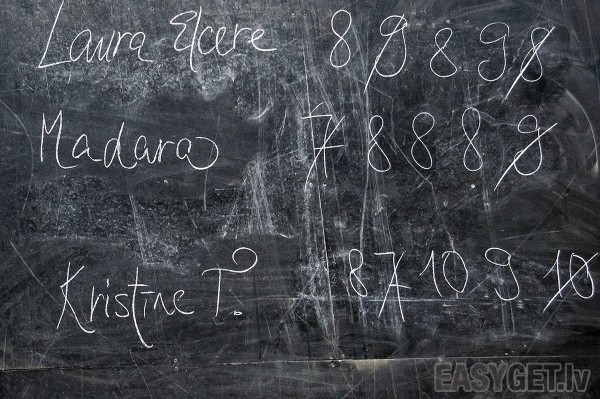 Laura Elcere 8 9 8 9 8
Madara 7 8 8 8 9
Kristīne T. 8 7 10 9 10
EASYGET.lv